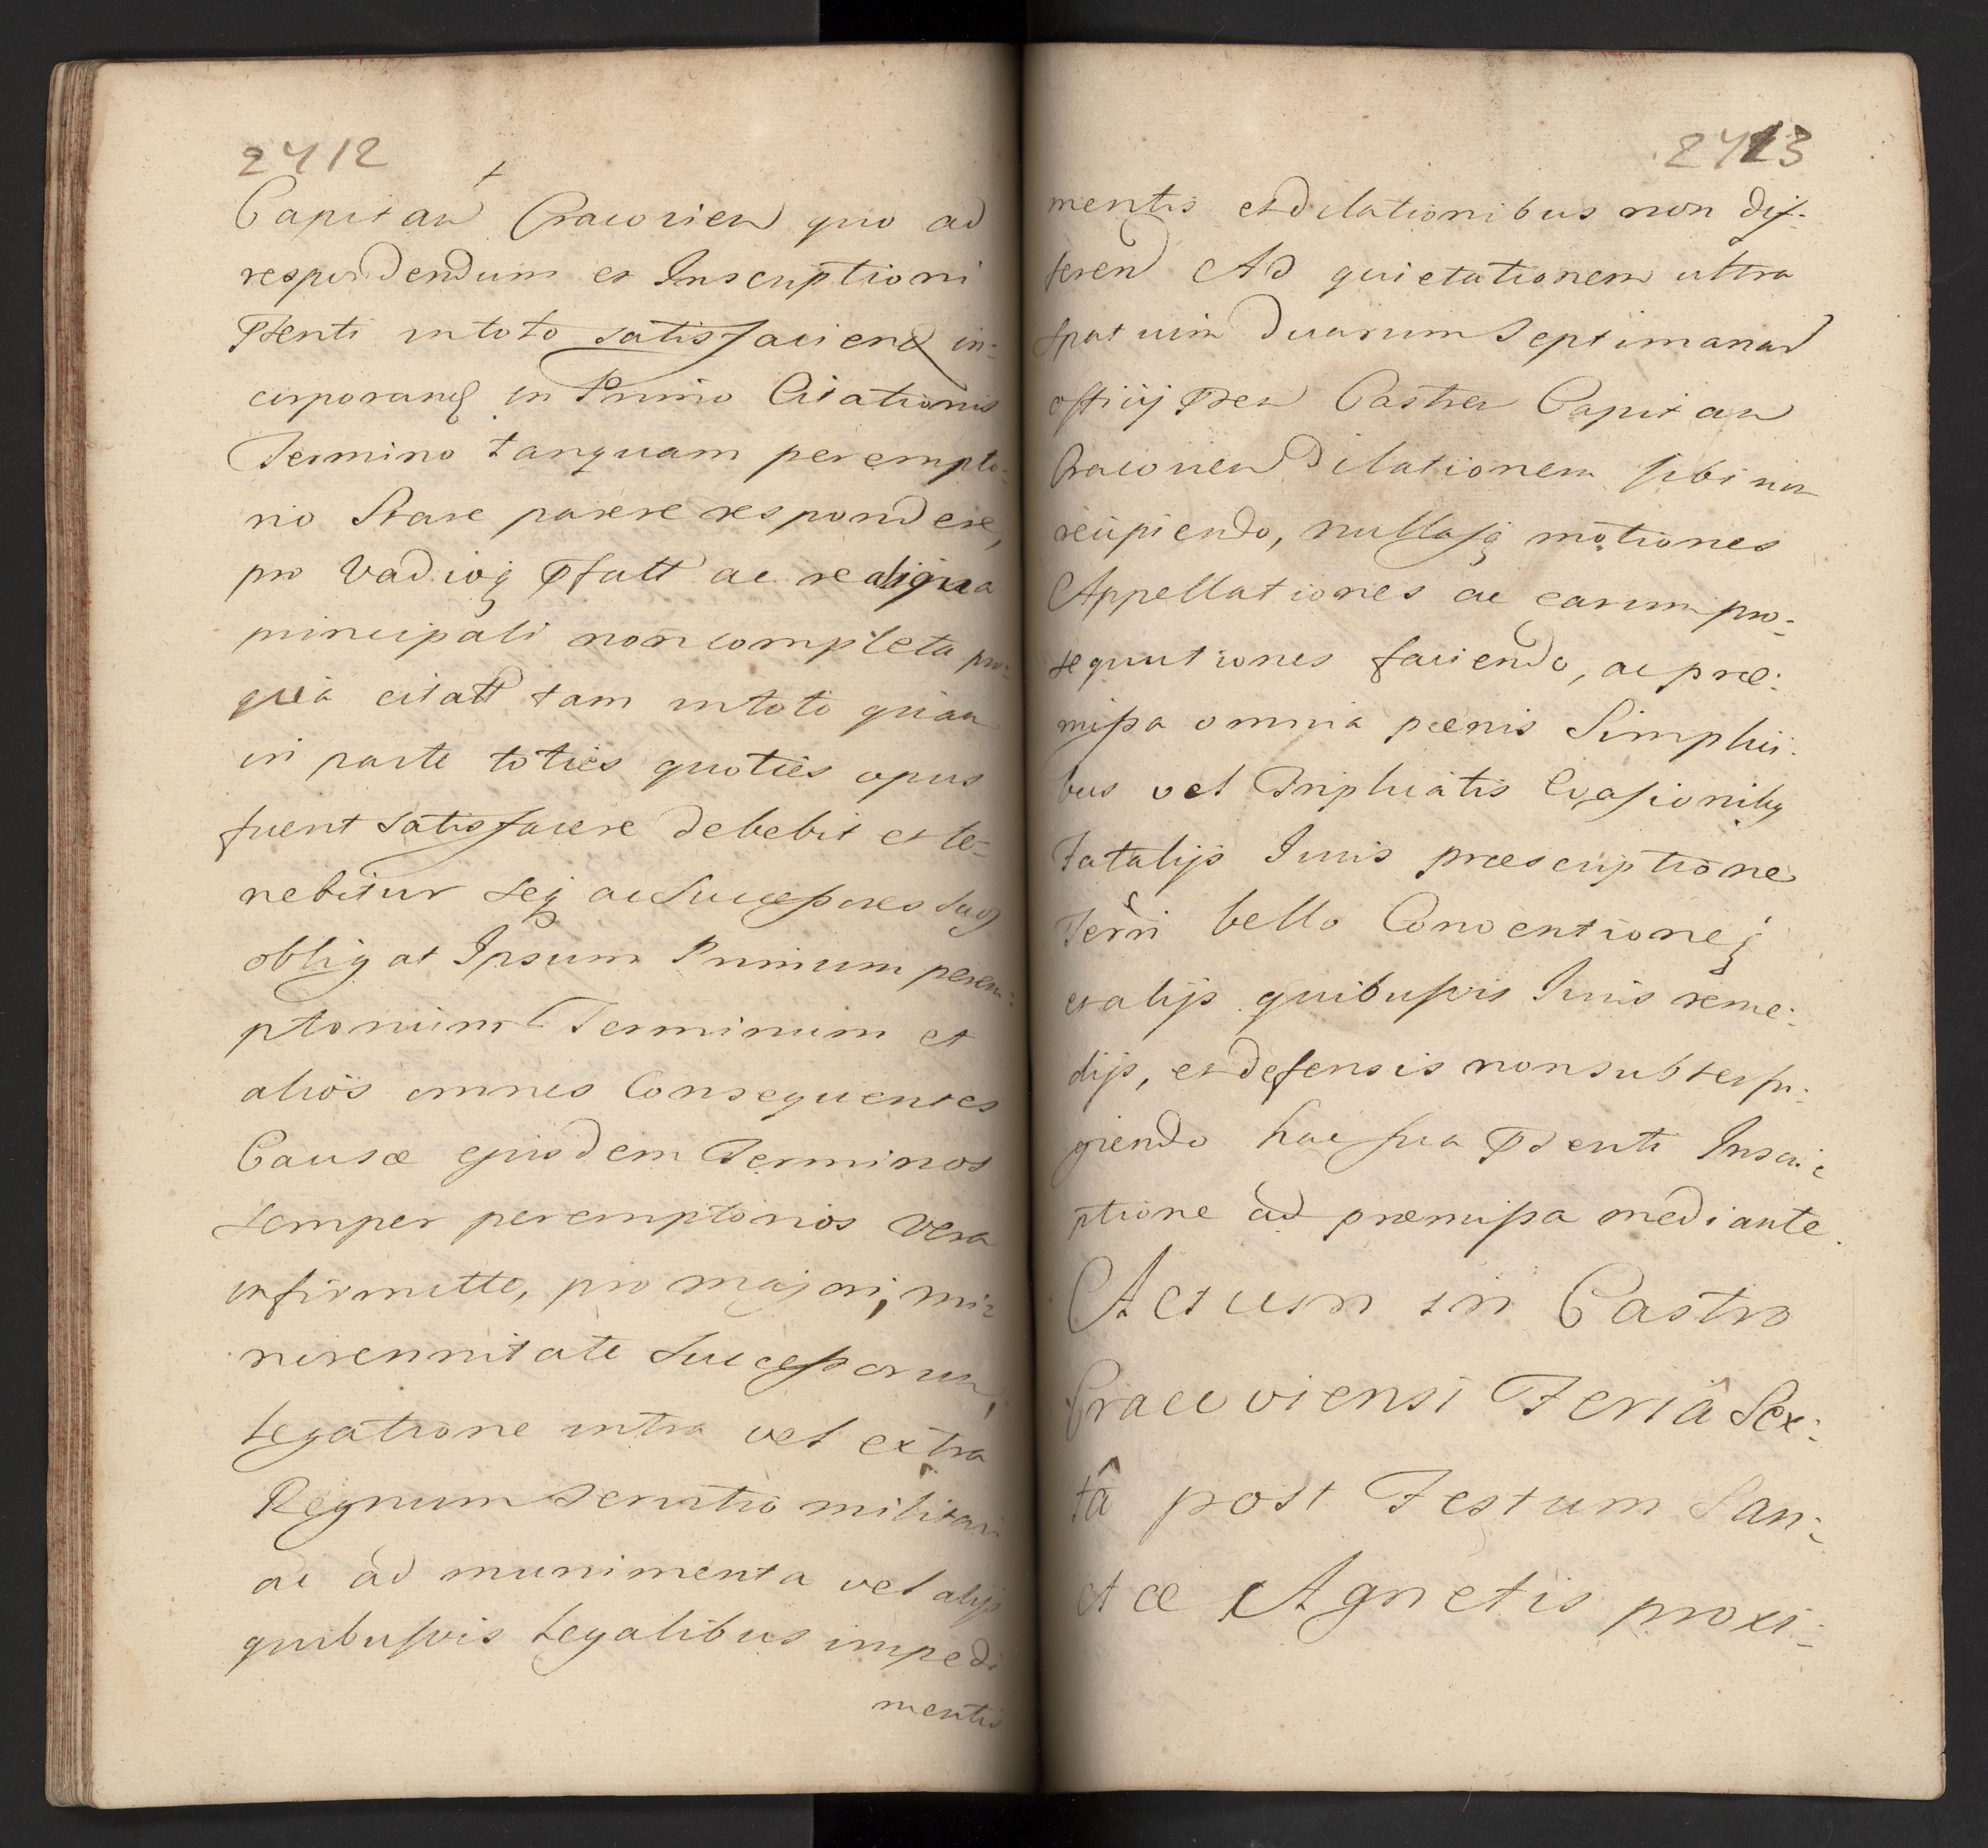 2412
Capitan Cracovien quo ad
respondendum et Inscriptioni
Psenti in toto satisfaciend in-
corporand in Primo Citationis
Termino tanquam perempto-
rio Stare parere respondere,
pro Vadioq Pfatt ac re aliqua
principali non completa pro
qua citatt tam in toto quam
in parte toties quoties opus
fuerit satisfacere debebit et te-
nebitur seq ac Successores suos
obligat Ipsum Primum perem-
ptorium Terminum et
alios omnes Consequentes
Causæ ejusdem Terminos
semper peremptorios Vera
infirmitte, pro majori, mi-
norennitate Successorum,
legatione intra vel extra
Regnum servitio militari
ac ad munimenta vel alijs
quibusvis legalibus impedi
mentis
2413
mentis et dilationibus non dif-
feren Ad quietationem ultra
spatium duarum Septimanar
officij Psen Castren Capitan
Cracovien dilationem sibi non
recipiendo, nullasq motiones
Appellationes ac earum pro-
sequutiones faciendo, ac præ-
missa omnia pœnis Simplici-
bus vel Triplicatis Evasionibq
Fatalijs Juris præscriptione
Terri bello Conventioneq
et alijs quibusvis Juris reme-
dijs, et defensis non subterfu-
giendo hac sua Psenti Inscri-
ptione ad præmissa mediante.
Actum in Castro
Cracoviensi Feriâ Sex-
tâ post Festum San-
ctæ Agnetis proxi-